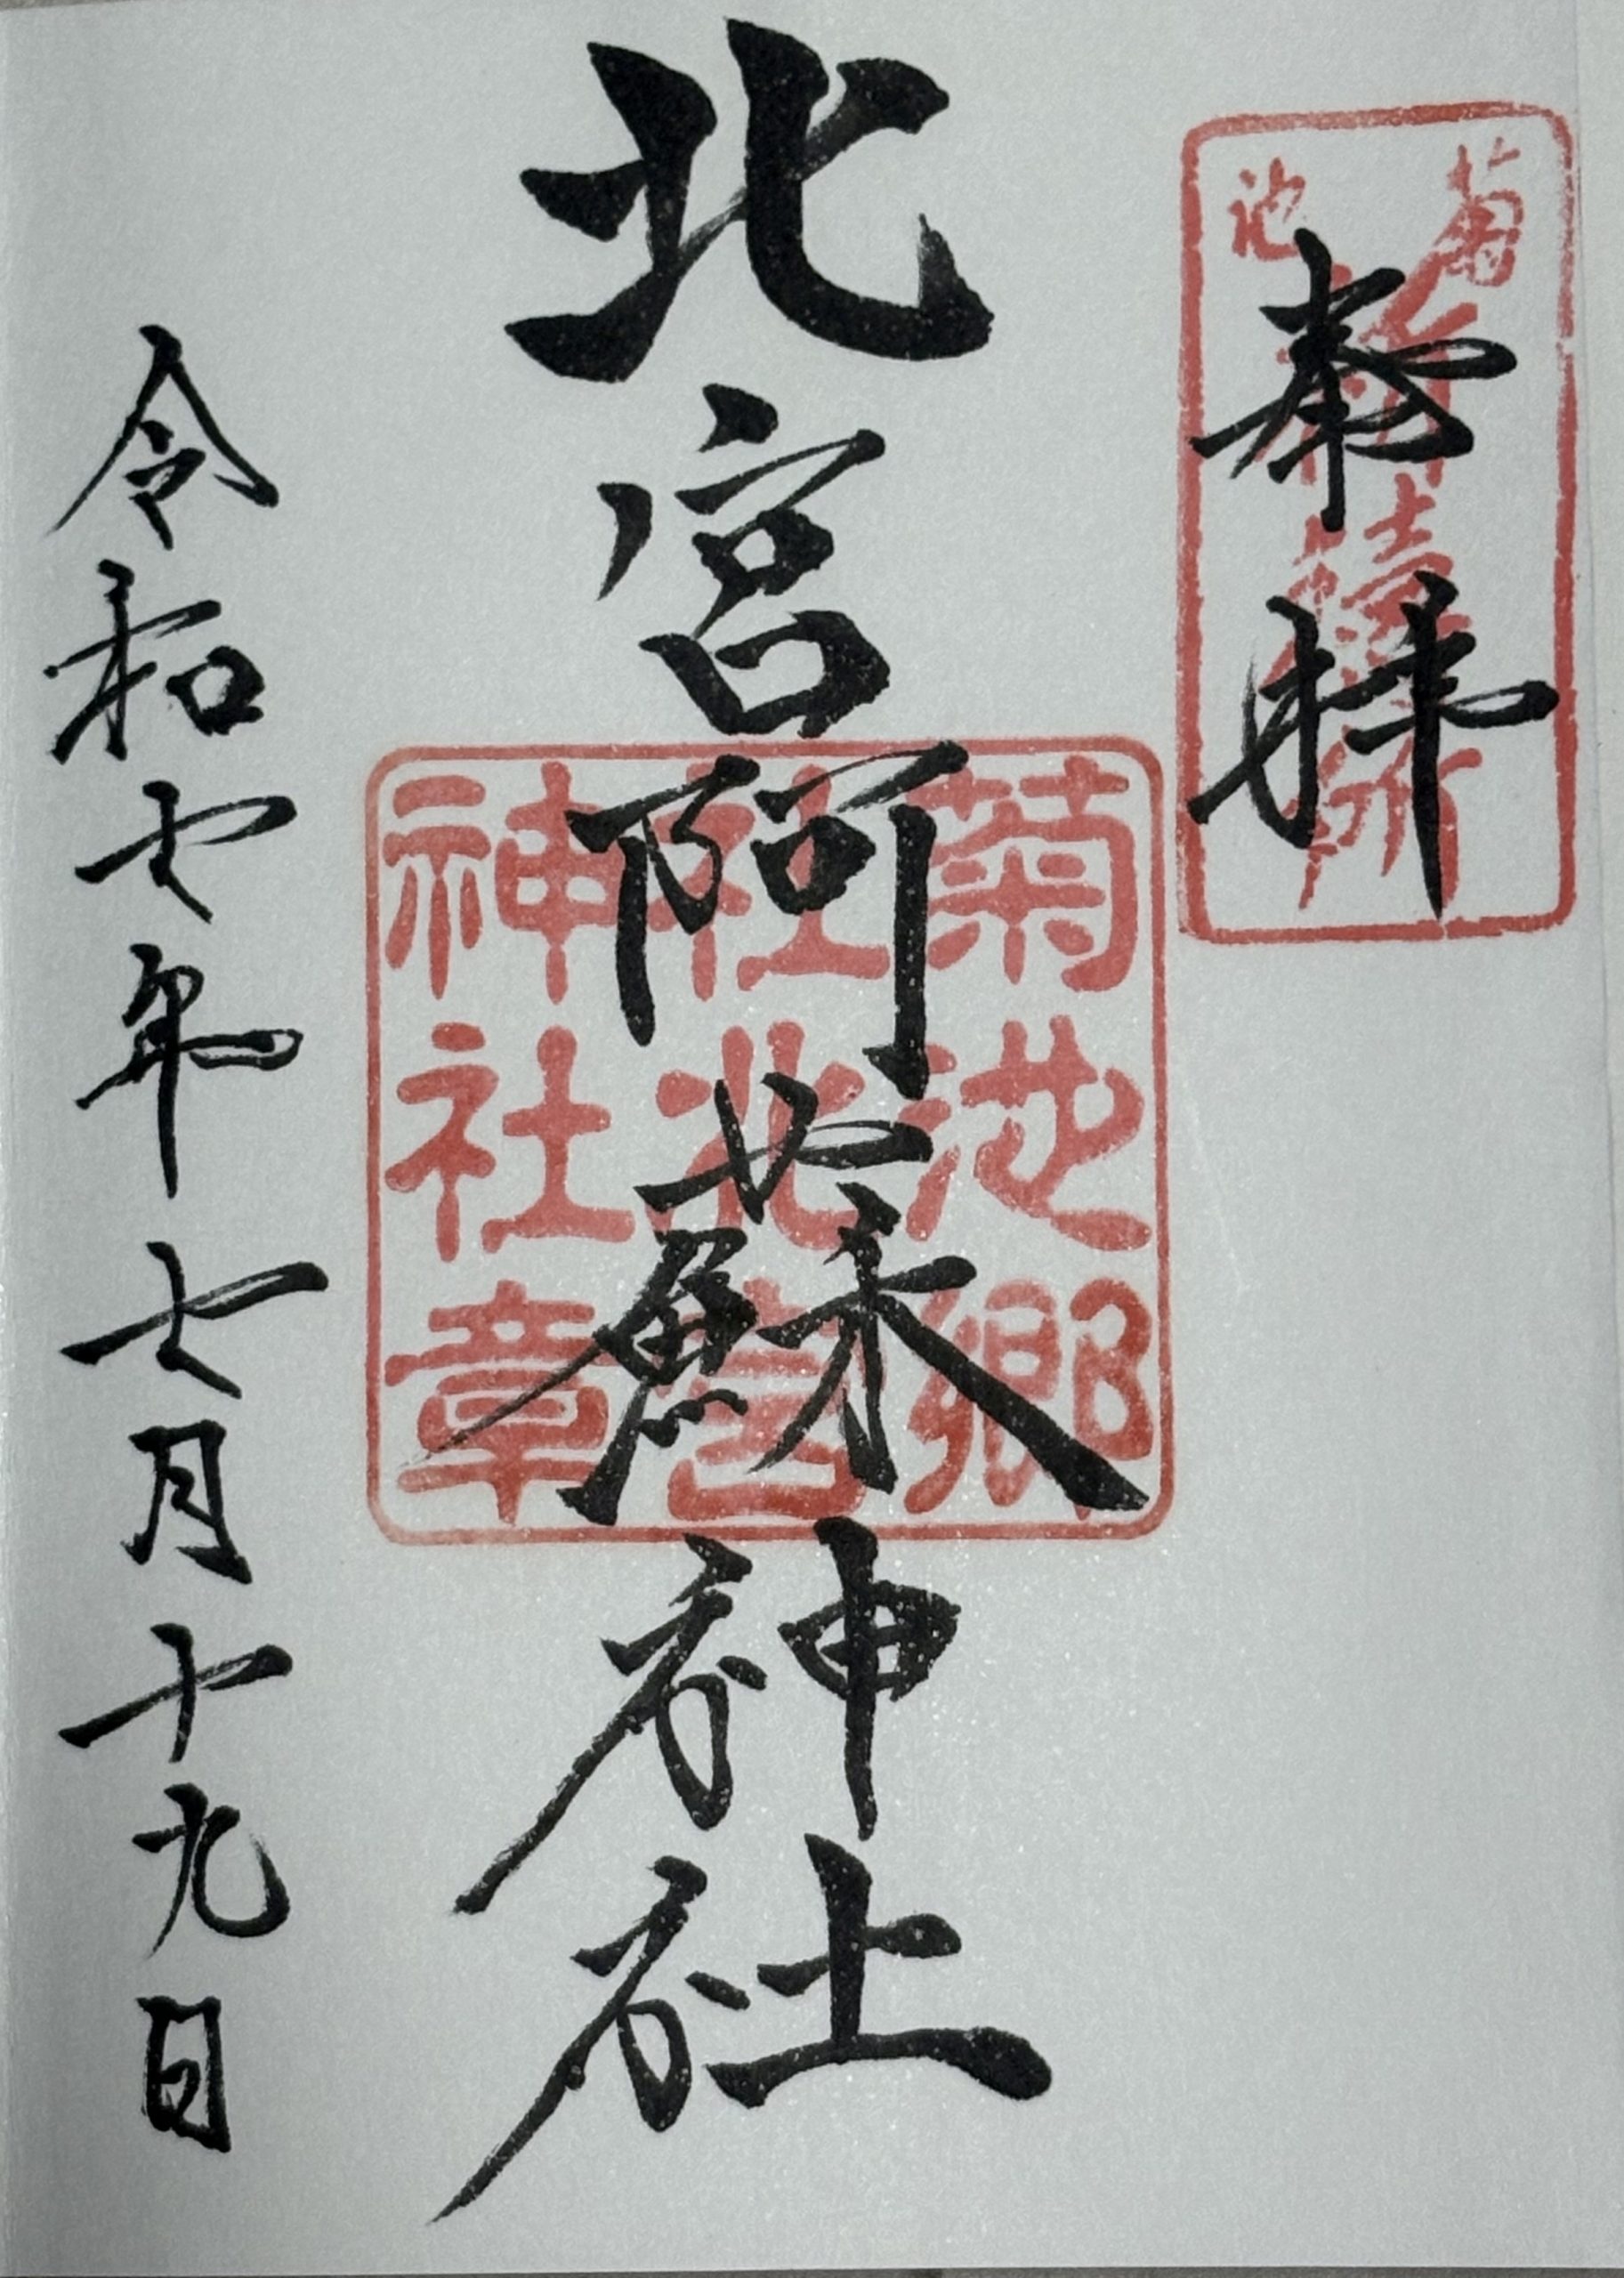 奉拝
菊池
祈禱所
北宮阿蘇神社
菊池郷
社北宮
神社章
令和七年七月十九日